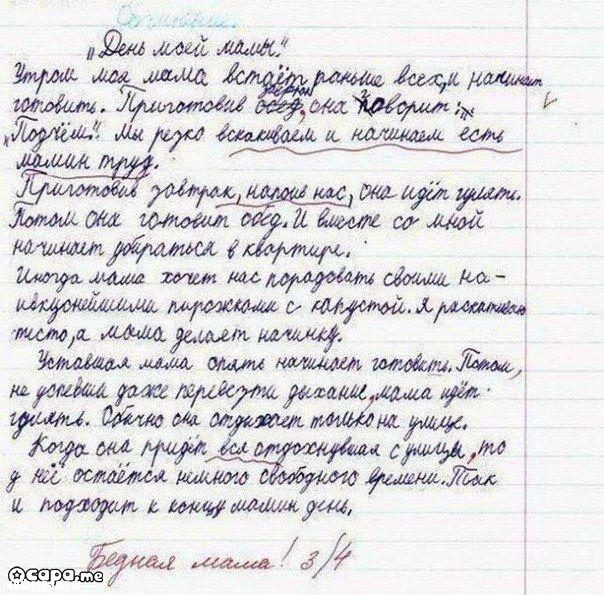 Сочинение.
„День моей мамы."
Утром моя мама встаёт раньше всех, и начинает
готовить. Приготовив завтрак, она говорит:
„Подъём". Мы резко вскакиваем и начинаем есть
мамин труд.
Приготовив завтрак, напоив нас, она идёт гулять.
Потом она готовит обед. И вместе со мной
начинает убираться в квартире.
Иногда мама хочет нас порадовать своими на-
ивкуснейшими пирожками с капустой. Я раскатываю
тесто, а мама делает начинку.
Уставшая мама опять начинает готовить. Потом,
не успевши даже перевезти дыхание, мама идёт
гулять. Обычно она отдыхает только на улице.
Когда она придёт вся отдохнувшая с улицы, то
у неё остаётся немного свободного времени. Так
и подходит к концу мамин день.
Бедная мама! 3/4
Ocapa.me